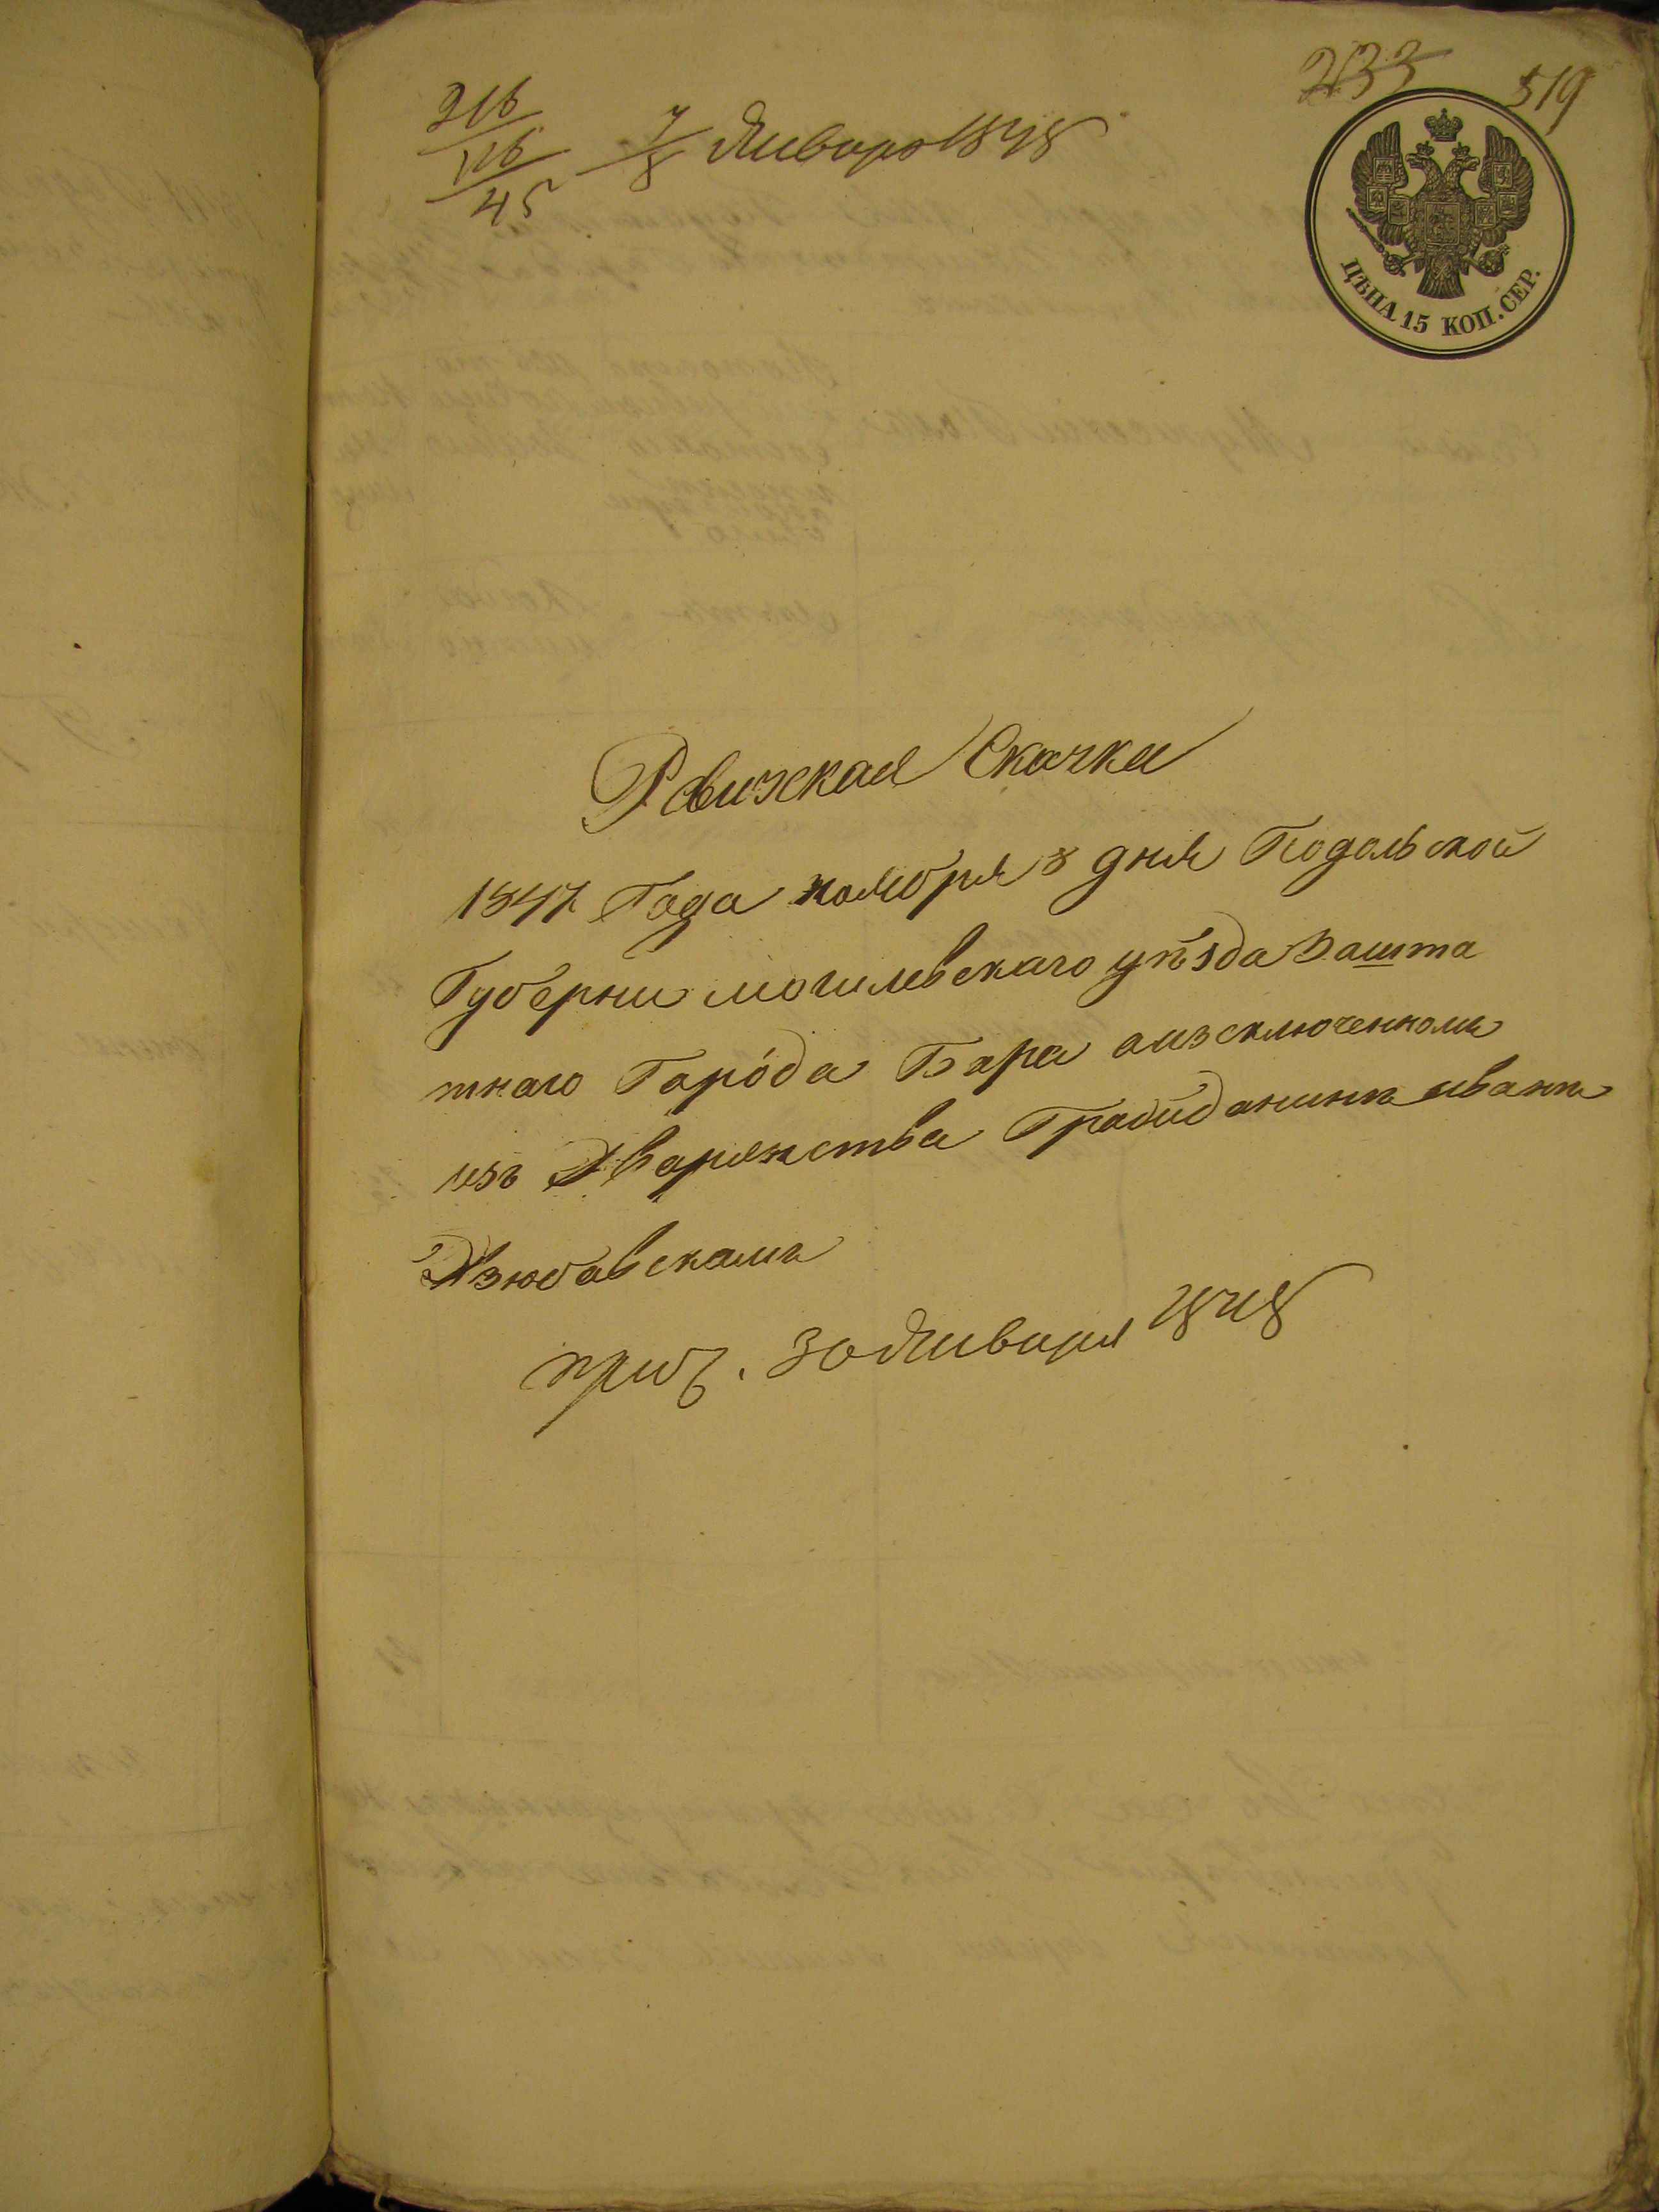 233 519
316
116
45
7/8 Января 1848
ЦѢНА 15 КОП. СЕР.
Рвизская Скачка
1847 Года ноября 8 дня Подольской
Губерни могилевскаго уѣзда Зашта
тнаго Города Бара о изсключенномъ
изъ Дварянства Гражданинъ иванъ
Дзюбавскомъ
30 Января 1848